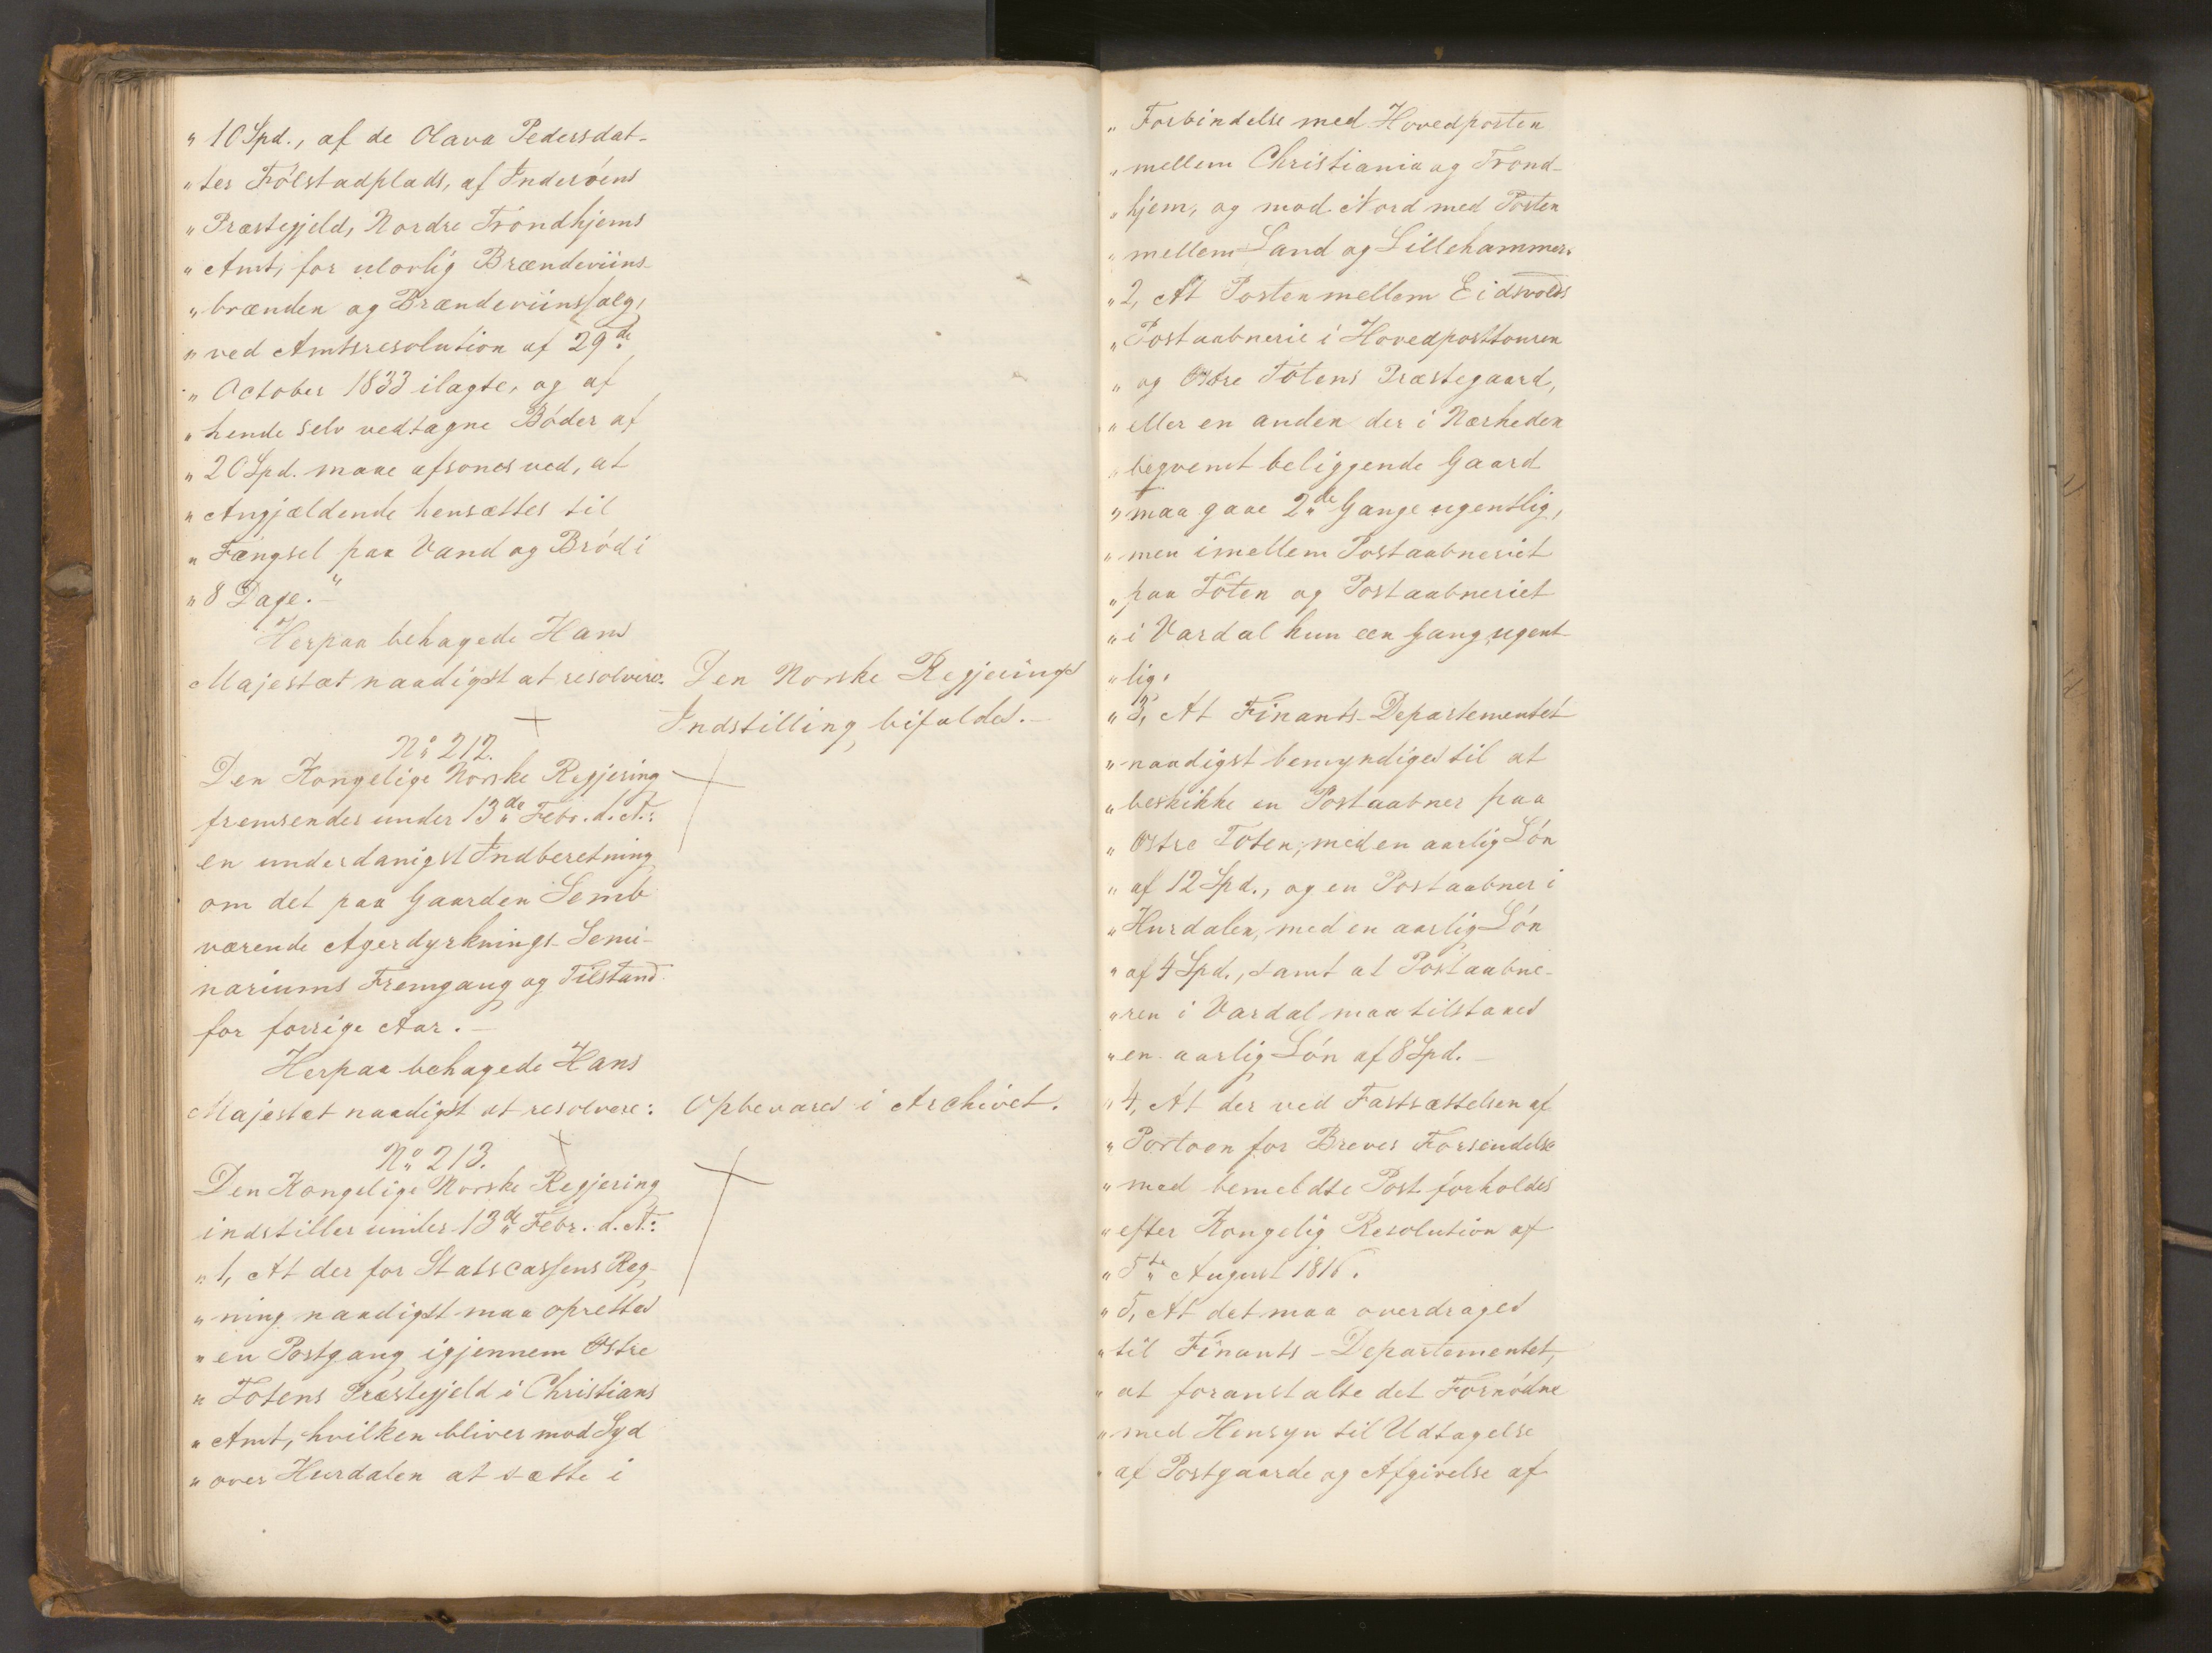 " 10 Spd., af de Olava Pedersdat-
" ter Fölstadplads, af Inderöens
" Præstegjeld, Nordre Trondhjems
" Amt, for ulovlig Brændeviins-
" brænden og Brændeviinssalg,
" ved Amtsresolution af 29de
" October 1833 ilagte, og af
" hende selv vedtagne Böder af
" 20 Spd. maae afsones ved, at
" Angjældende hensættes til
" Fængsel paa Vand og Bröd i
" 8 Dage."
Herpaa behagede Hans
Majestæt naadigst at resolvere: Den Norske Regjerings
Indstilling bifaldes.-
No 212.
Den Kongelige Norske Regjering
fremsender under 13de Febr. d. A.:
en underdanigst Indberetning
om det paa Gaarden Semb
værende Agerdyrknings-Semi-
nariums Fremgang og Tilstand
for forrige Aar.-
Herpaa behagede Hans
Majestæt naadigst at resolvere: Opbevares i Archivet.
No 213.
Den Kongelige Norske Regjering
indstiller under 13de Febr. d. A.:
" 1, At der for Statscassens Reg-
" ning naadigst maa oprettes
" en Postgang igjennem Østre
" Totens Præstegjeld i Christians
" Amt, hvilken bliver mod Syd
" over Hurdalen at sætte i
" Forbindelse med Hovedposten
" mellem Christiania og Trond-
" hjem, og mod Nord med Posten
" mellem Land og Lillehammer.
" 2, At Posten mellem Eidsvolds
" Postaabnerie i Hovedposttouren
" og Østre Totens Præstegaard,
" eller en anden der i Nærheden
" beqvemt beliggende Gaard
" maa gaae 2de Gange ugentlig,
" men imellem Postaabneriet
" paa Toten og Postaabneriet
" i Vardal kun een Gang ugent-
" lig.
" 3, At Finants-Departementet
" naadigst bemyndiges til at
" beskikke en Postaabner paa
" Østre Toten, med en aarlig Lön
" af 12 Spd., og en Postaabner i
" Hurdalen, med en aarlig Lön
" af 4 Spd., samt at Postaabne-
" ren i Vardal maa tilstaaes
" en aarlig Lön af 8 Spd.-
" 4, At der ved Fastsættelsen af
" Portoen for Breves Forsendelse
" med bemeldte Post forholdes
" efter Kongelig Resolution af
" 5te August 1816.
" 5, At det maa overdrages
" til Finants-Departementet,
" at foranstalte det Fornödne
" med Hensyn til Udtagelse
" af Postgaarde og Afgivelse af